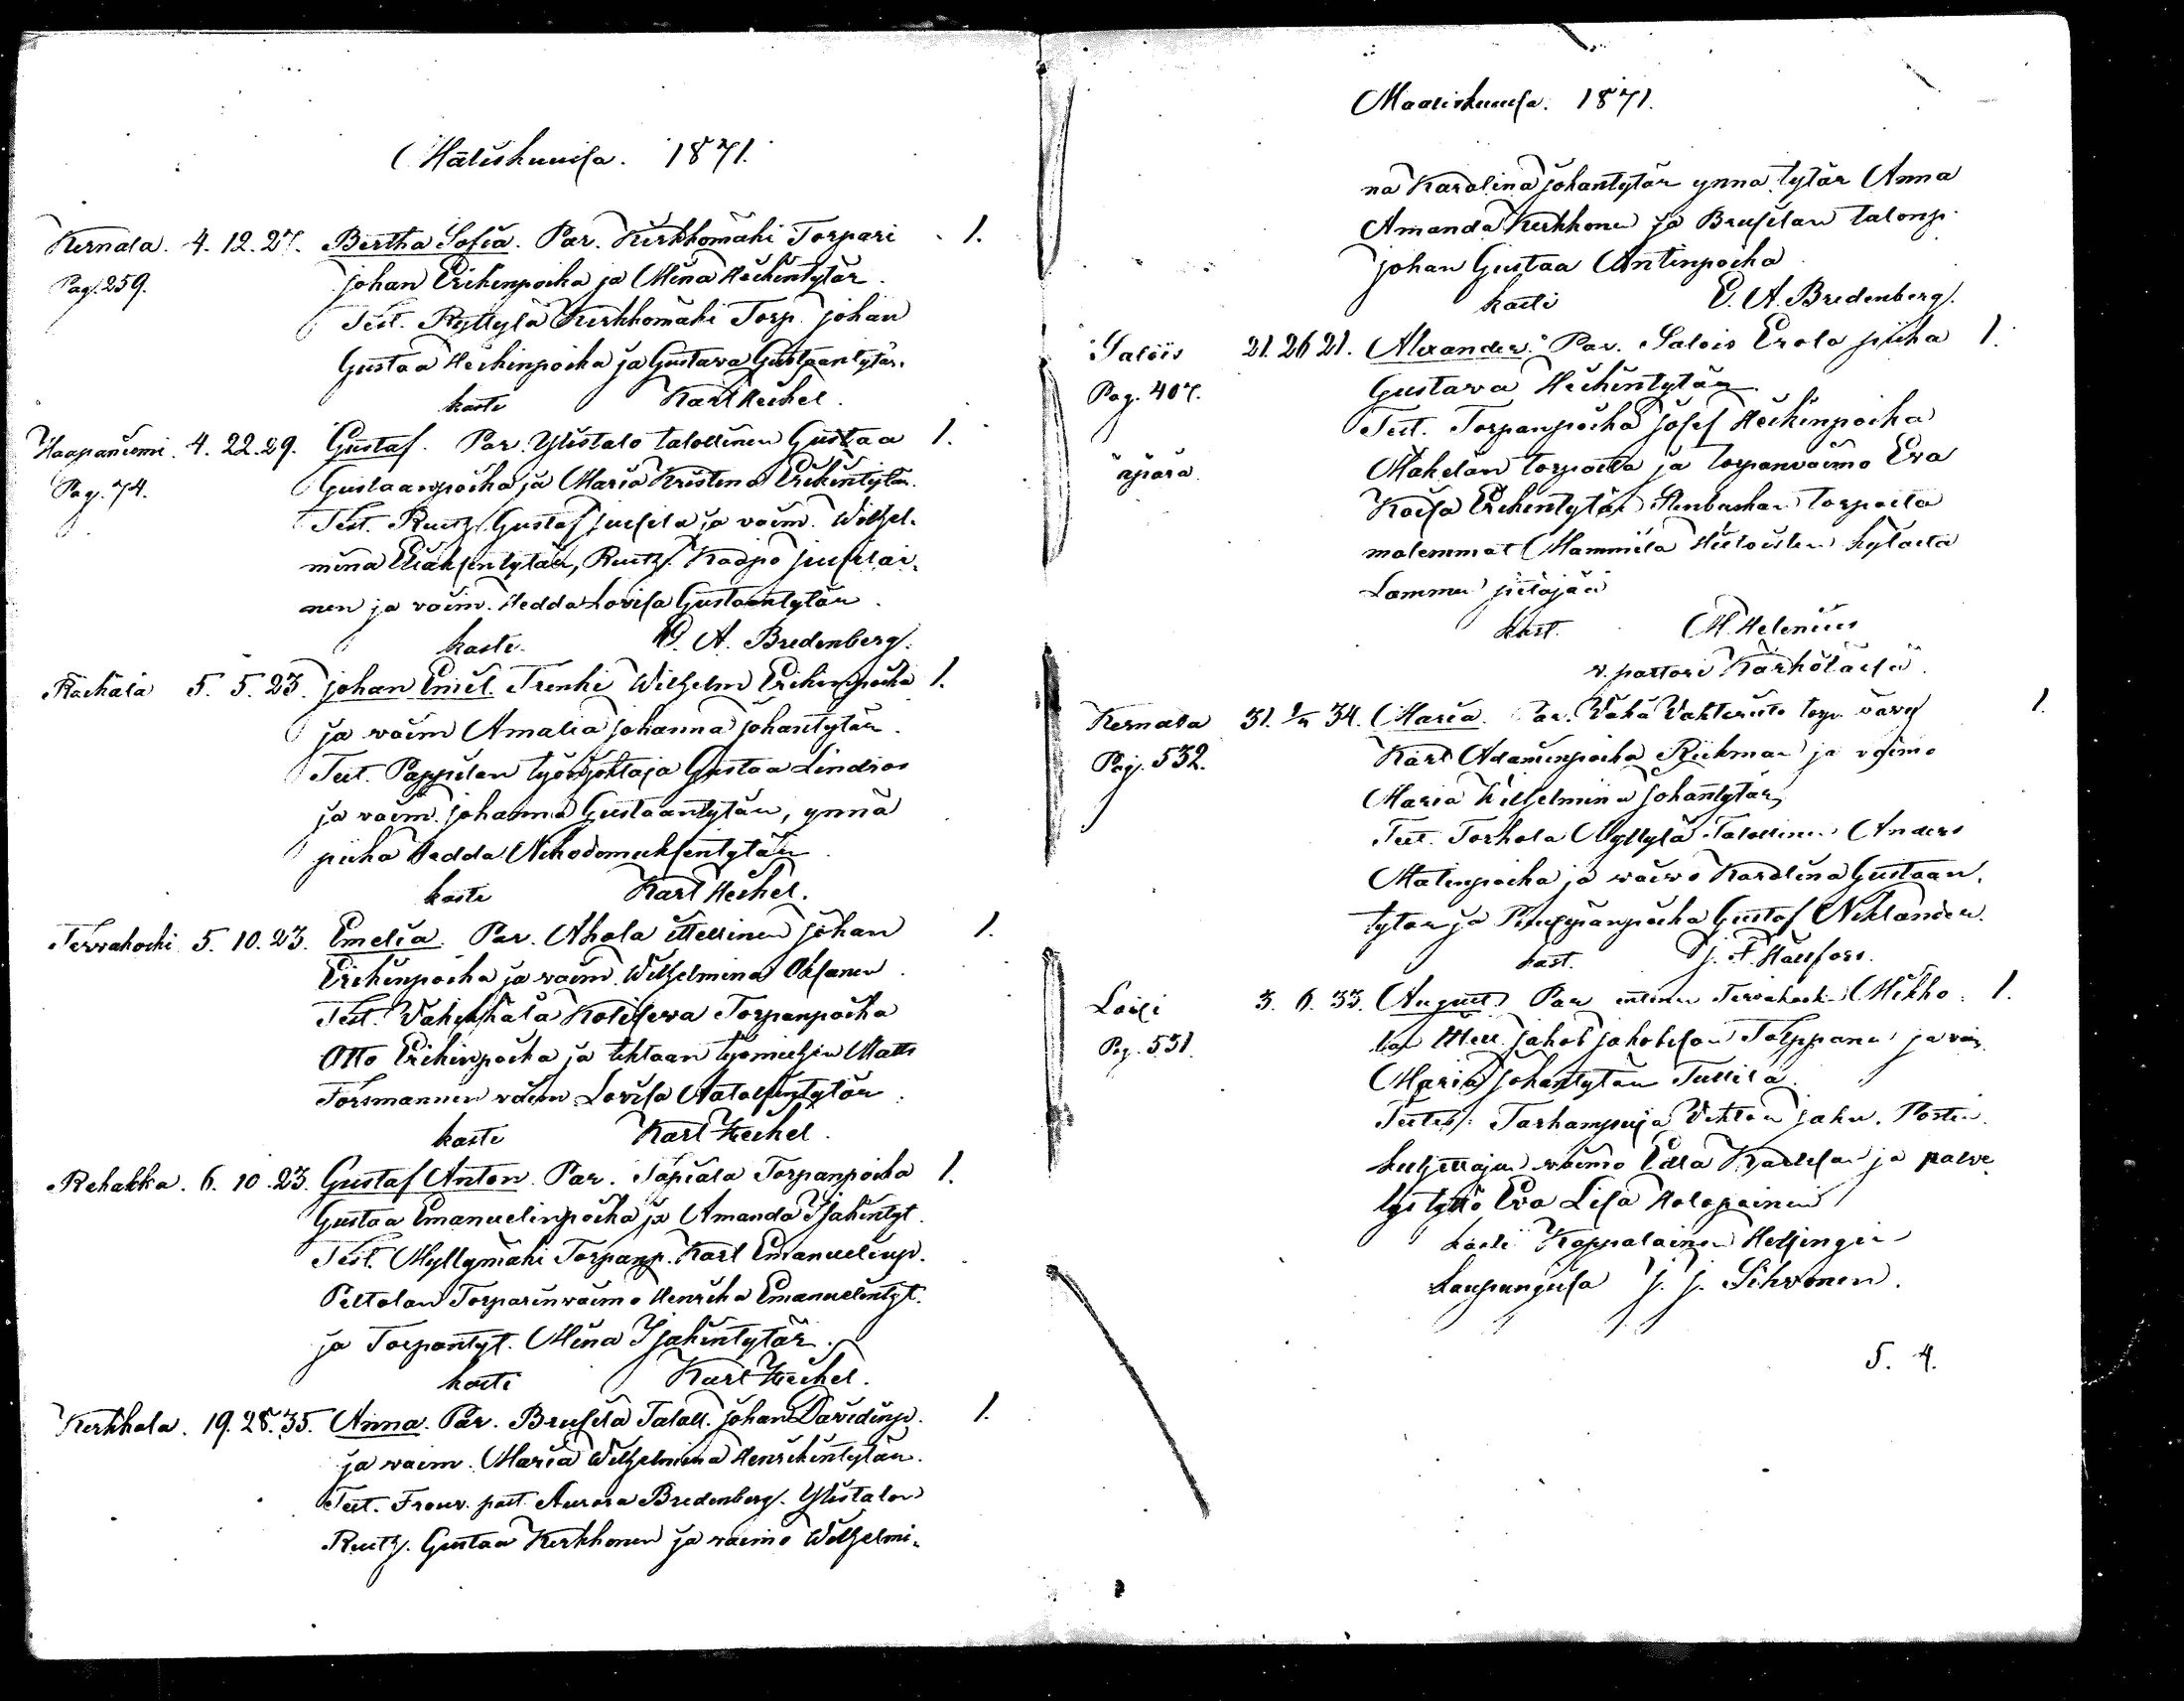 Maaliskuusa. 1871.
Kernala. 4. 12. 27. Bertha Sofia. Par. Kirkkomäki Torpari 1.
Pag. 259. Johan Erikinpoika ja Mina Heikintytär.
Test. Ryttylä Kirkkomäki Torp. Johan
Gustaa Heikinpoika ja Gustava Gustaantytär.
kasti Karl Heikel.
Haapaniemi. 4. 22. 29. Gustaf. Par. Ylistalo talollinen Gustaa 1.
Pag. 74. Gustaanpoika ja Maria Kristina Erikintytär.
Test. Rusth. Gustaf Jusila ja vaim. Wilhel-
mina Eliaksentytär, Rusth. Kaapo Jusilai-
nen ja vaim. Hedda Lovisa Gustaantytär.
kasti. E. A. Bredenberg.
Räikälä 5. 5. 23. Johan Emil. Trenki Wilhelm Erikinpoika 1.
ja waim Amalia Johanna Johantytär.
Test. Pappilan työnjohtaja Gustaa Lindroos
ja vaim. Johanna Gustaantytär, ynnä
piika Hedda Nikodemuksentytär
kasti Karl Heikel.
Terwakoski 5. 10. 23. Emelia. Par. Ahola ittellinen Johan 1.
Erikinpoika ja waim. Wilhelmina Oksanen.
Test. Torpanpoika
Otto Erikinpoika ja tehtaan työmiehen Matts
Forsmannin vaim Lovisa
kasti Karl Heikel.
Rehakka. 6. 10. 23. Gustaf Anton. Par. Tapiala Torpanpoika 1.
Gustaa Emanuelinpoika ja Amanda Isakintyt.
Test. Myllymäki Torpanp. Karl Emanuelinp.
Peltolan Torparinvaimo Henrika Emanuelintyt.
ja Torpantyt. Mina Isakintytär.
kasti Karl Heikel.
Kerkkola. 19. 28. 35. Anna. Par. Brusila Taloll. Johan Davidinp. 1.
ja vaim. Maria Wilhelmina Henrikintytär.
Test. Frouv. past. Aurora Bredenberg. Ylistalon
Rusth. Gustaa Kerkkonen ja vaimo Wilhelmi-
Maaliskuusa. 1871.
na Karolina Johantytär ynnä tytär Anna
Amanda Kerkkonen ja Brusilan talonp.
Johan Gustaa Antinpoika
kasti E. A. Bredenberg.
Salois 21. 26 21. Alexander. Par. Salois Erola piika 1.
Pag. 407. Gustava Heikintytär
Test. Torpanpoika Josef Heikinpoika
äpärä. Mäkelän torpasta ja torpanvaimo Eva
Kaisa Erikintytär torpasta
molemmat kylästä
Lammin pitäjää
kast. M. Helenius
v. pastori Kärkölässä
Kernala 31. 34. Maria. Par. Vähä torp. vävy 1.
Pag. 532. Karl Adaminpoika ja vaimo
Maria Wilhelmina Johantytär,
Test. Torhola Myllylä Talollinen Anders
Matinpoika ja waimo Karolina Gustaan-
tytär ja Gustaf Niklander.
kast. J. F. Hällfors.
Loisi 3. 6. 33. August. Par Terwakosk. 1.
Pag. 531. Jakob Jakobsson Tolppanen ja vaim.
Maria Johantytär Tullila.
Testes: Tarhampuja
kuljettajan waimo Edla Karlsson ja palve-
lystyttö Eva Lisa Holopainen
kasti Kappalainen Helsingin
kaupungisa J. J. Sihvonen.
5. 4.